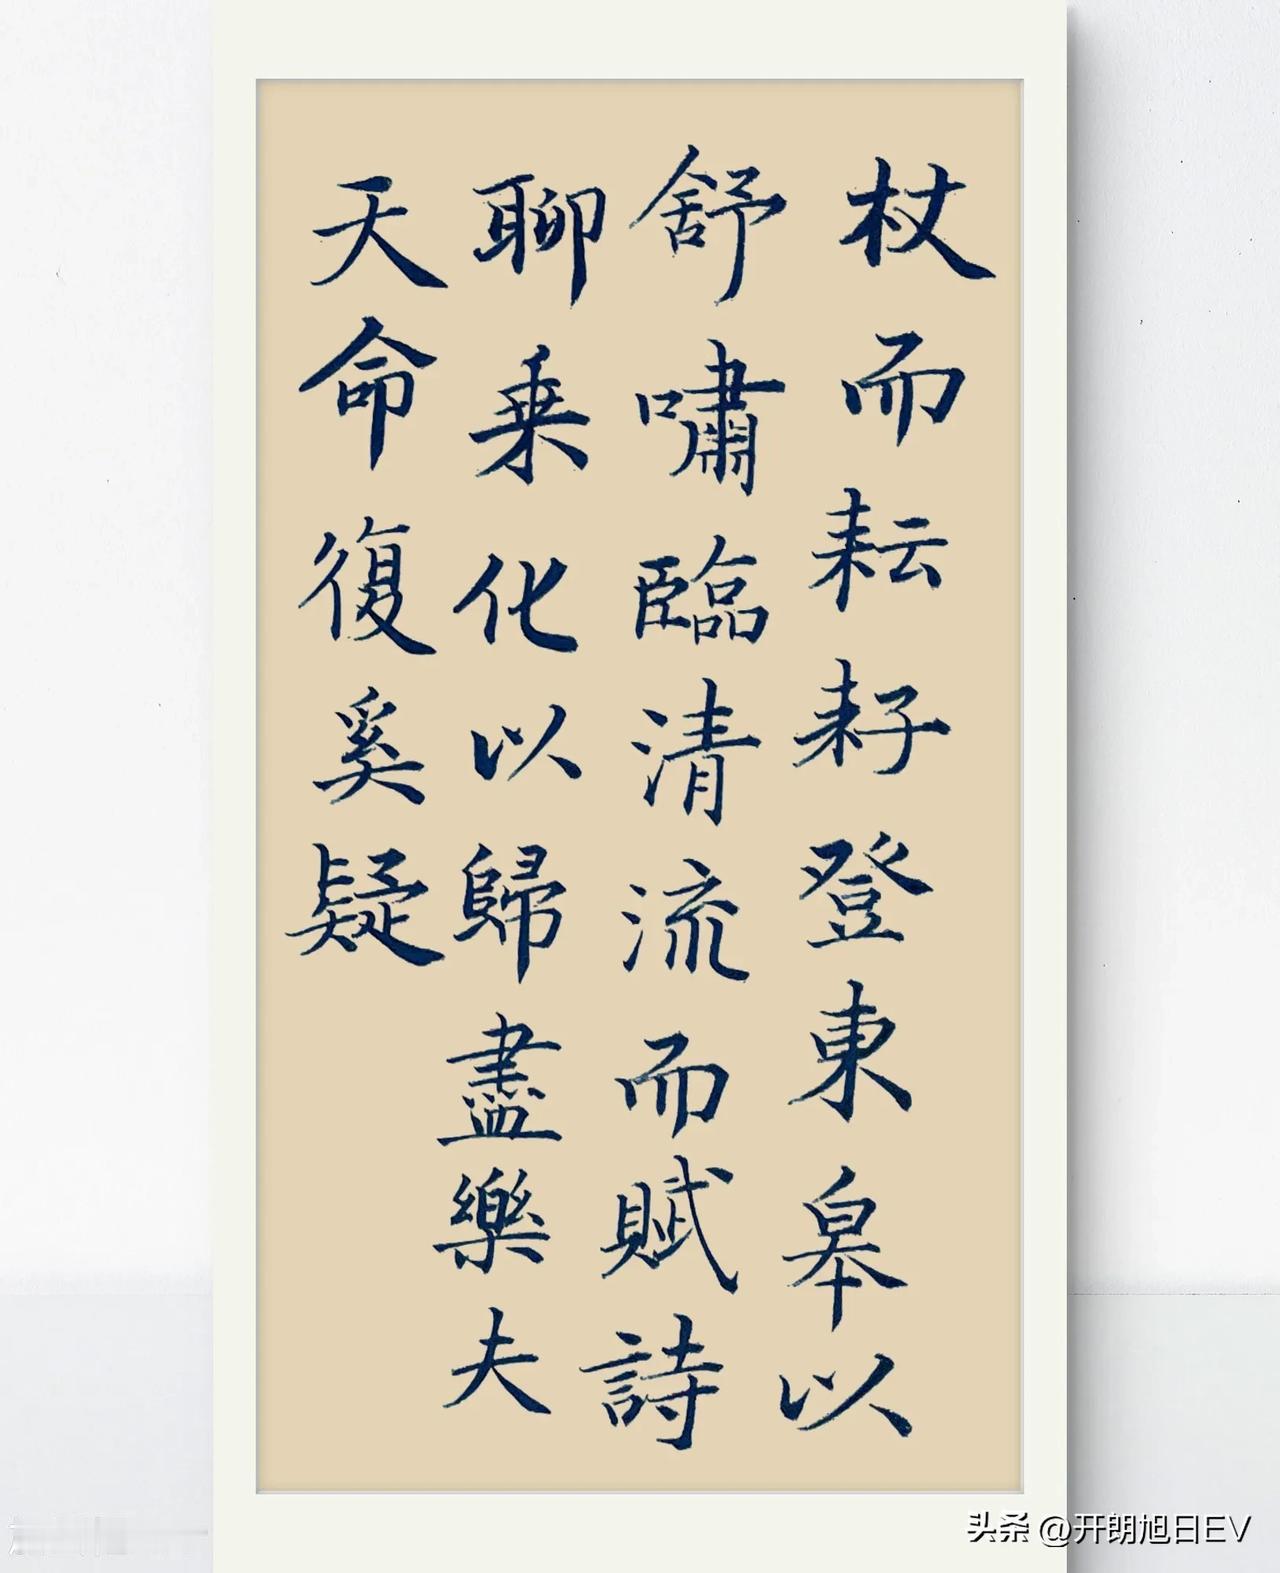 杖而耘耔登東皋以
舒嘯臨清流而賦詩
聊乗化以歸盡樂夫
天命復奚疑
头条 @开朗旭日EV